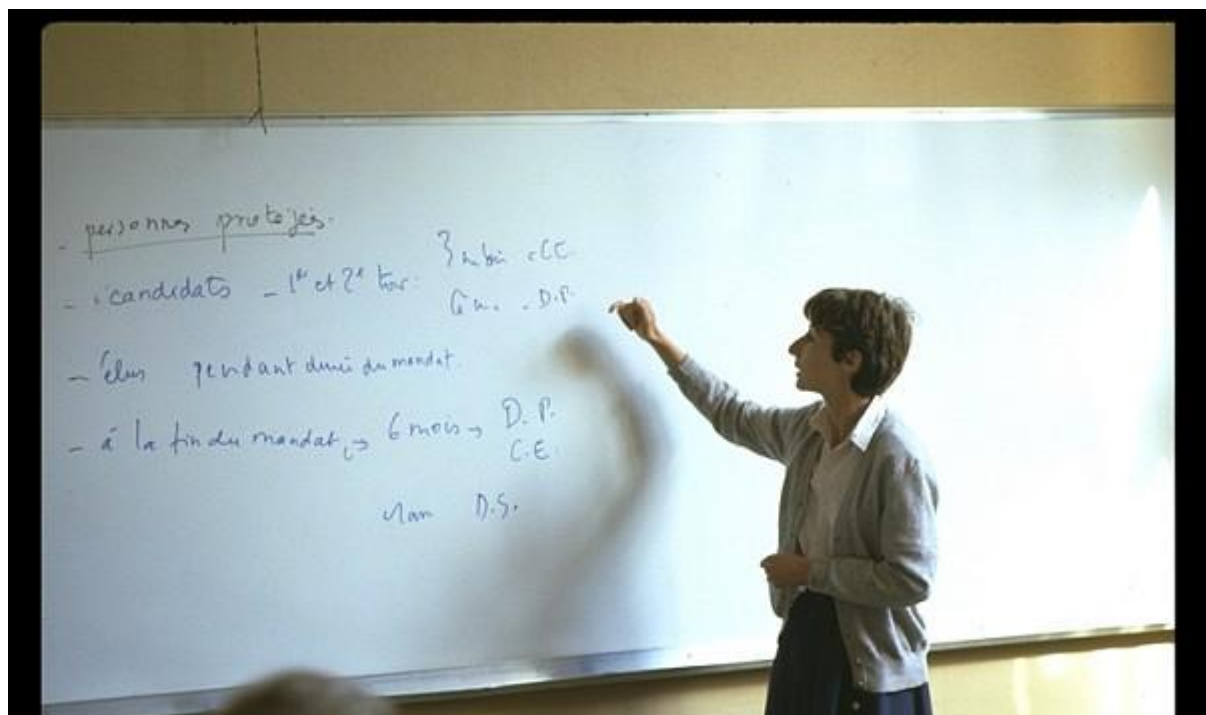 - personnes protégées.
- candidats - 1er et 2e tour. 3 mois - C.E.
6 m. - D.P.
- élus pendant durée du mandat.
- à la fin du mandat, → 6 mois → D.P.
C.E.
1 an D.S.